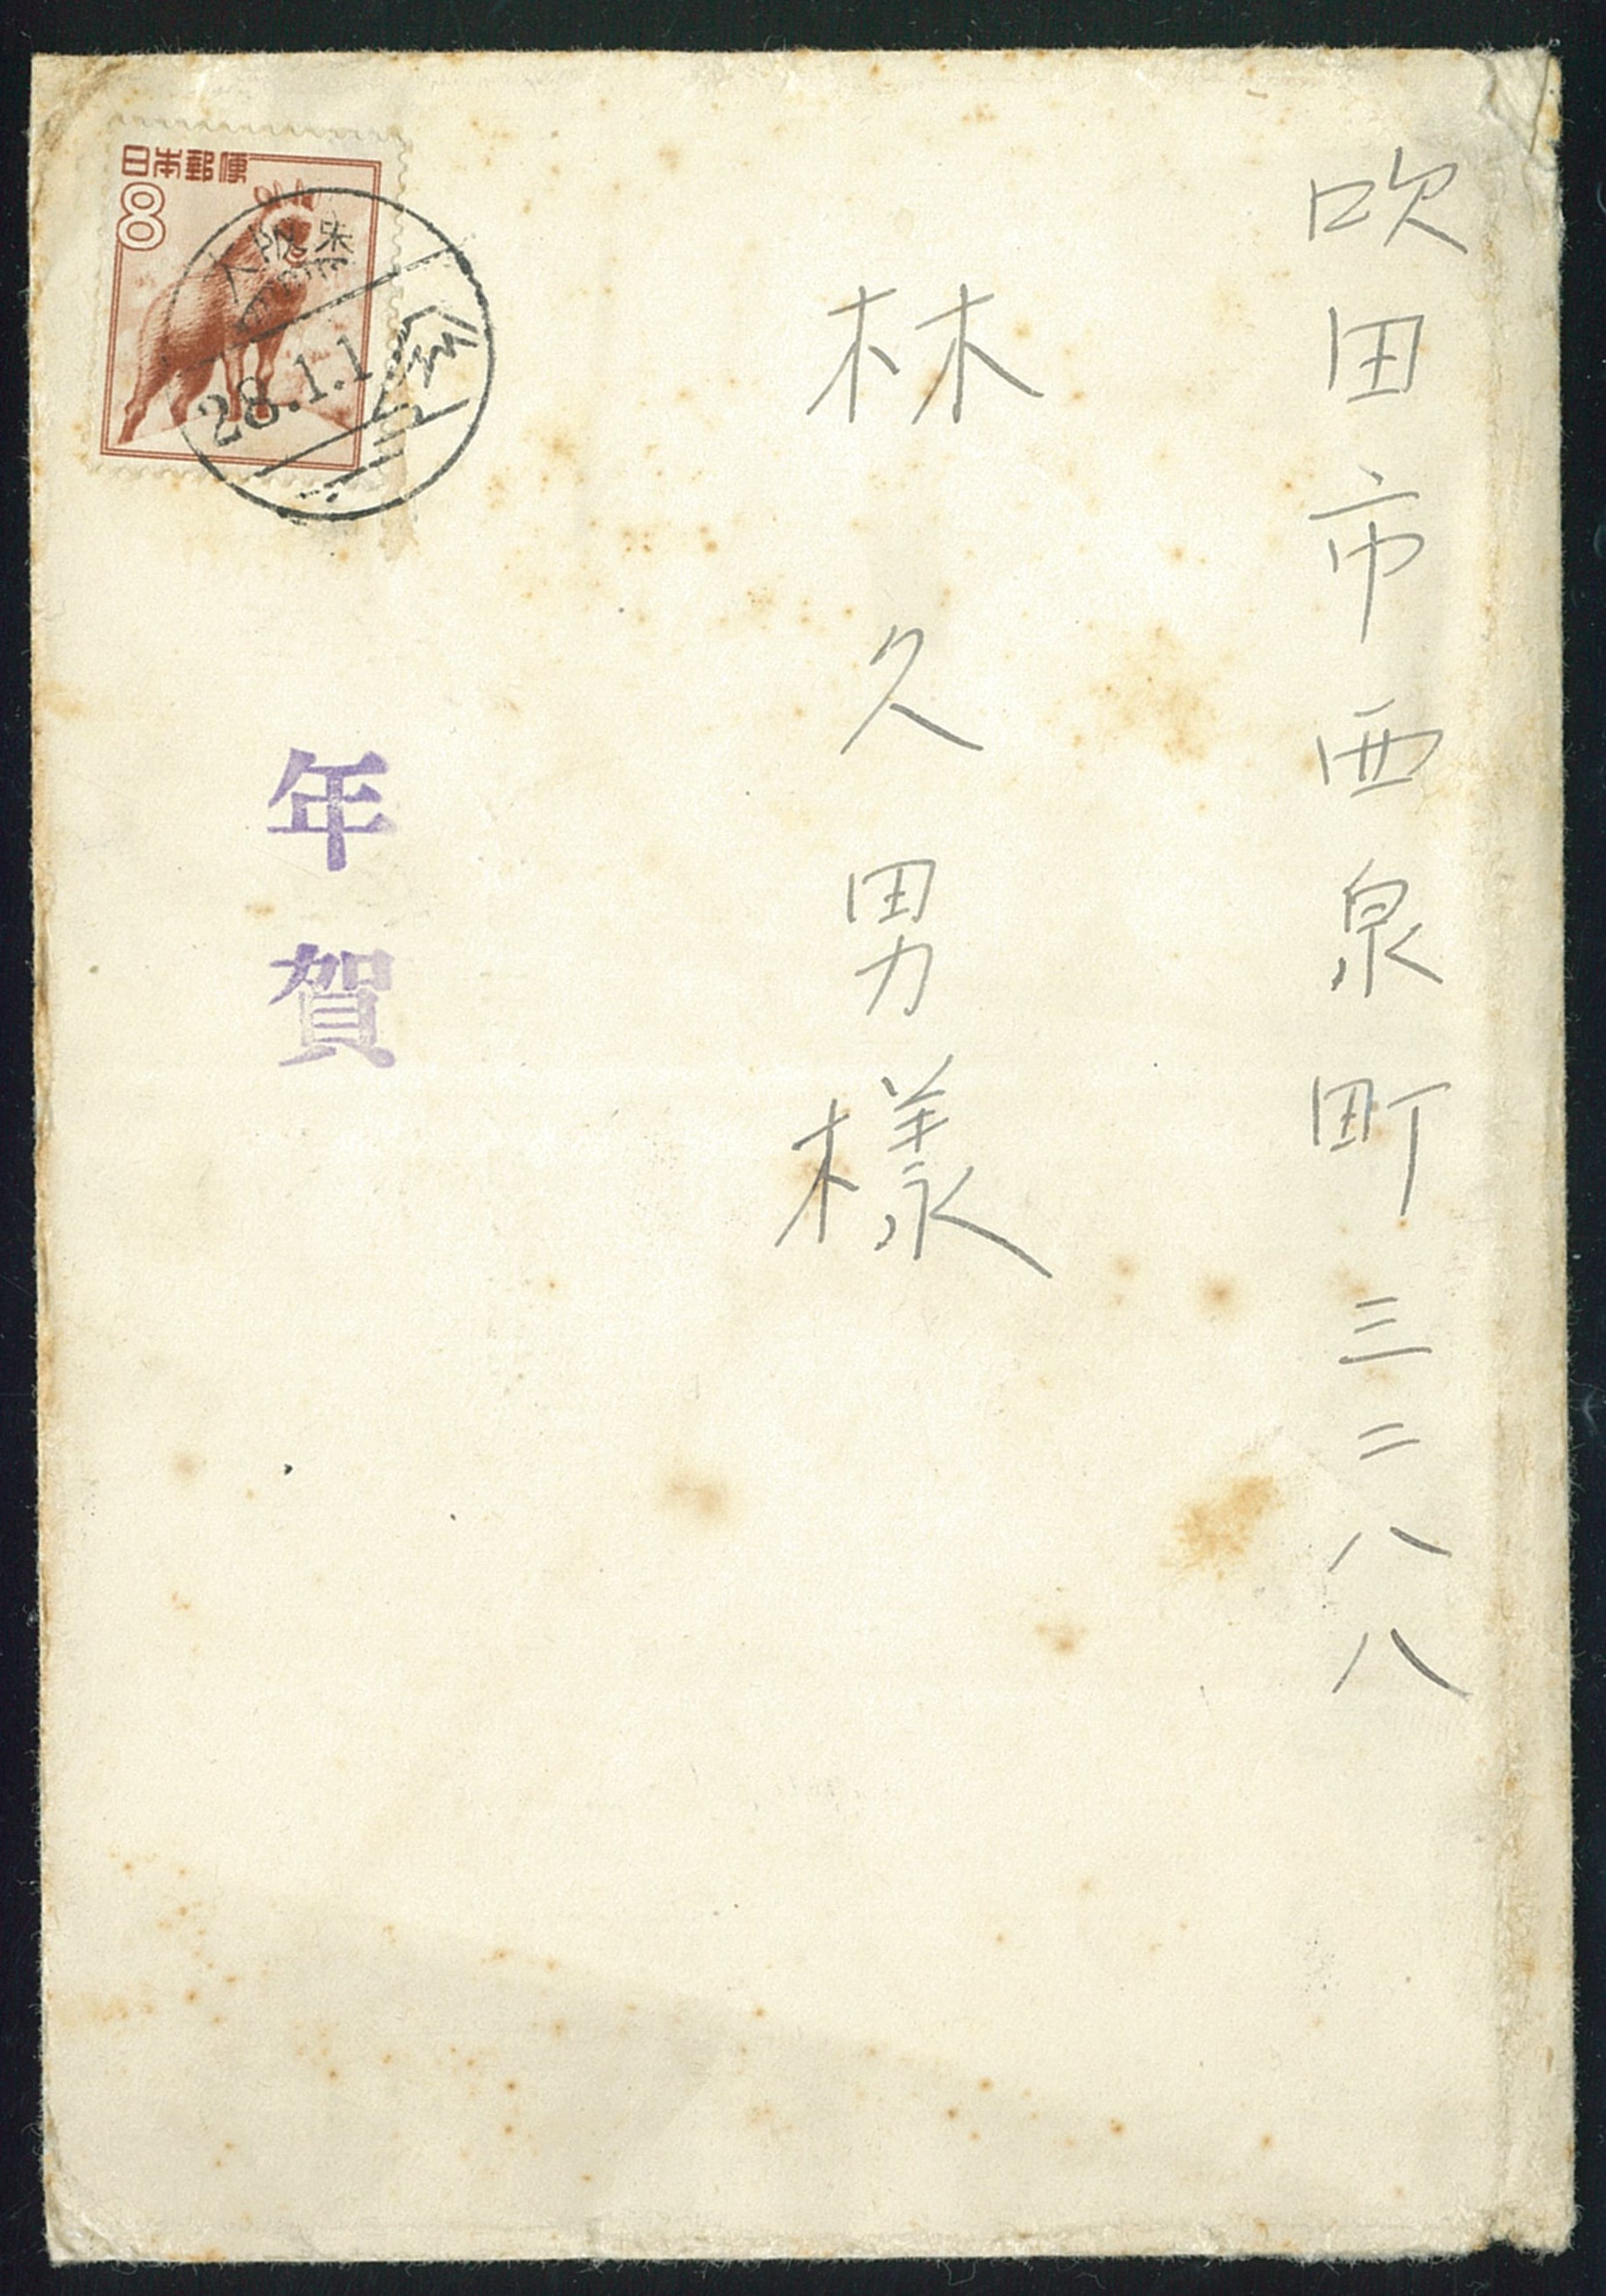 吹田市西泉町三二八八
林久男様
日本郵便
8
28.1.1
年賀